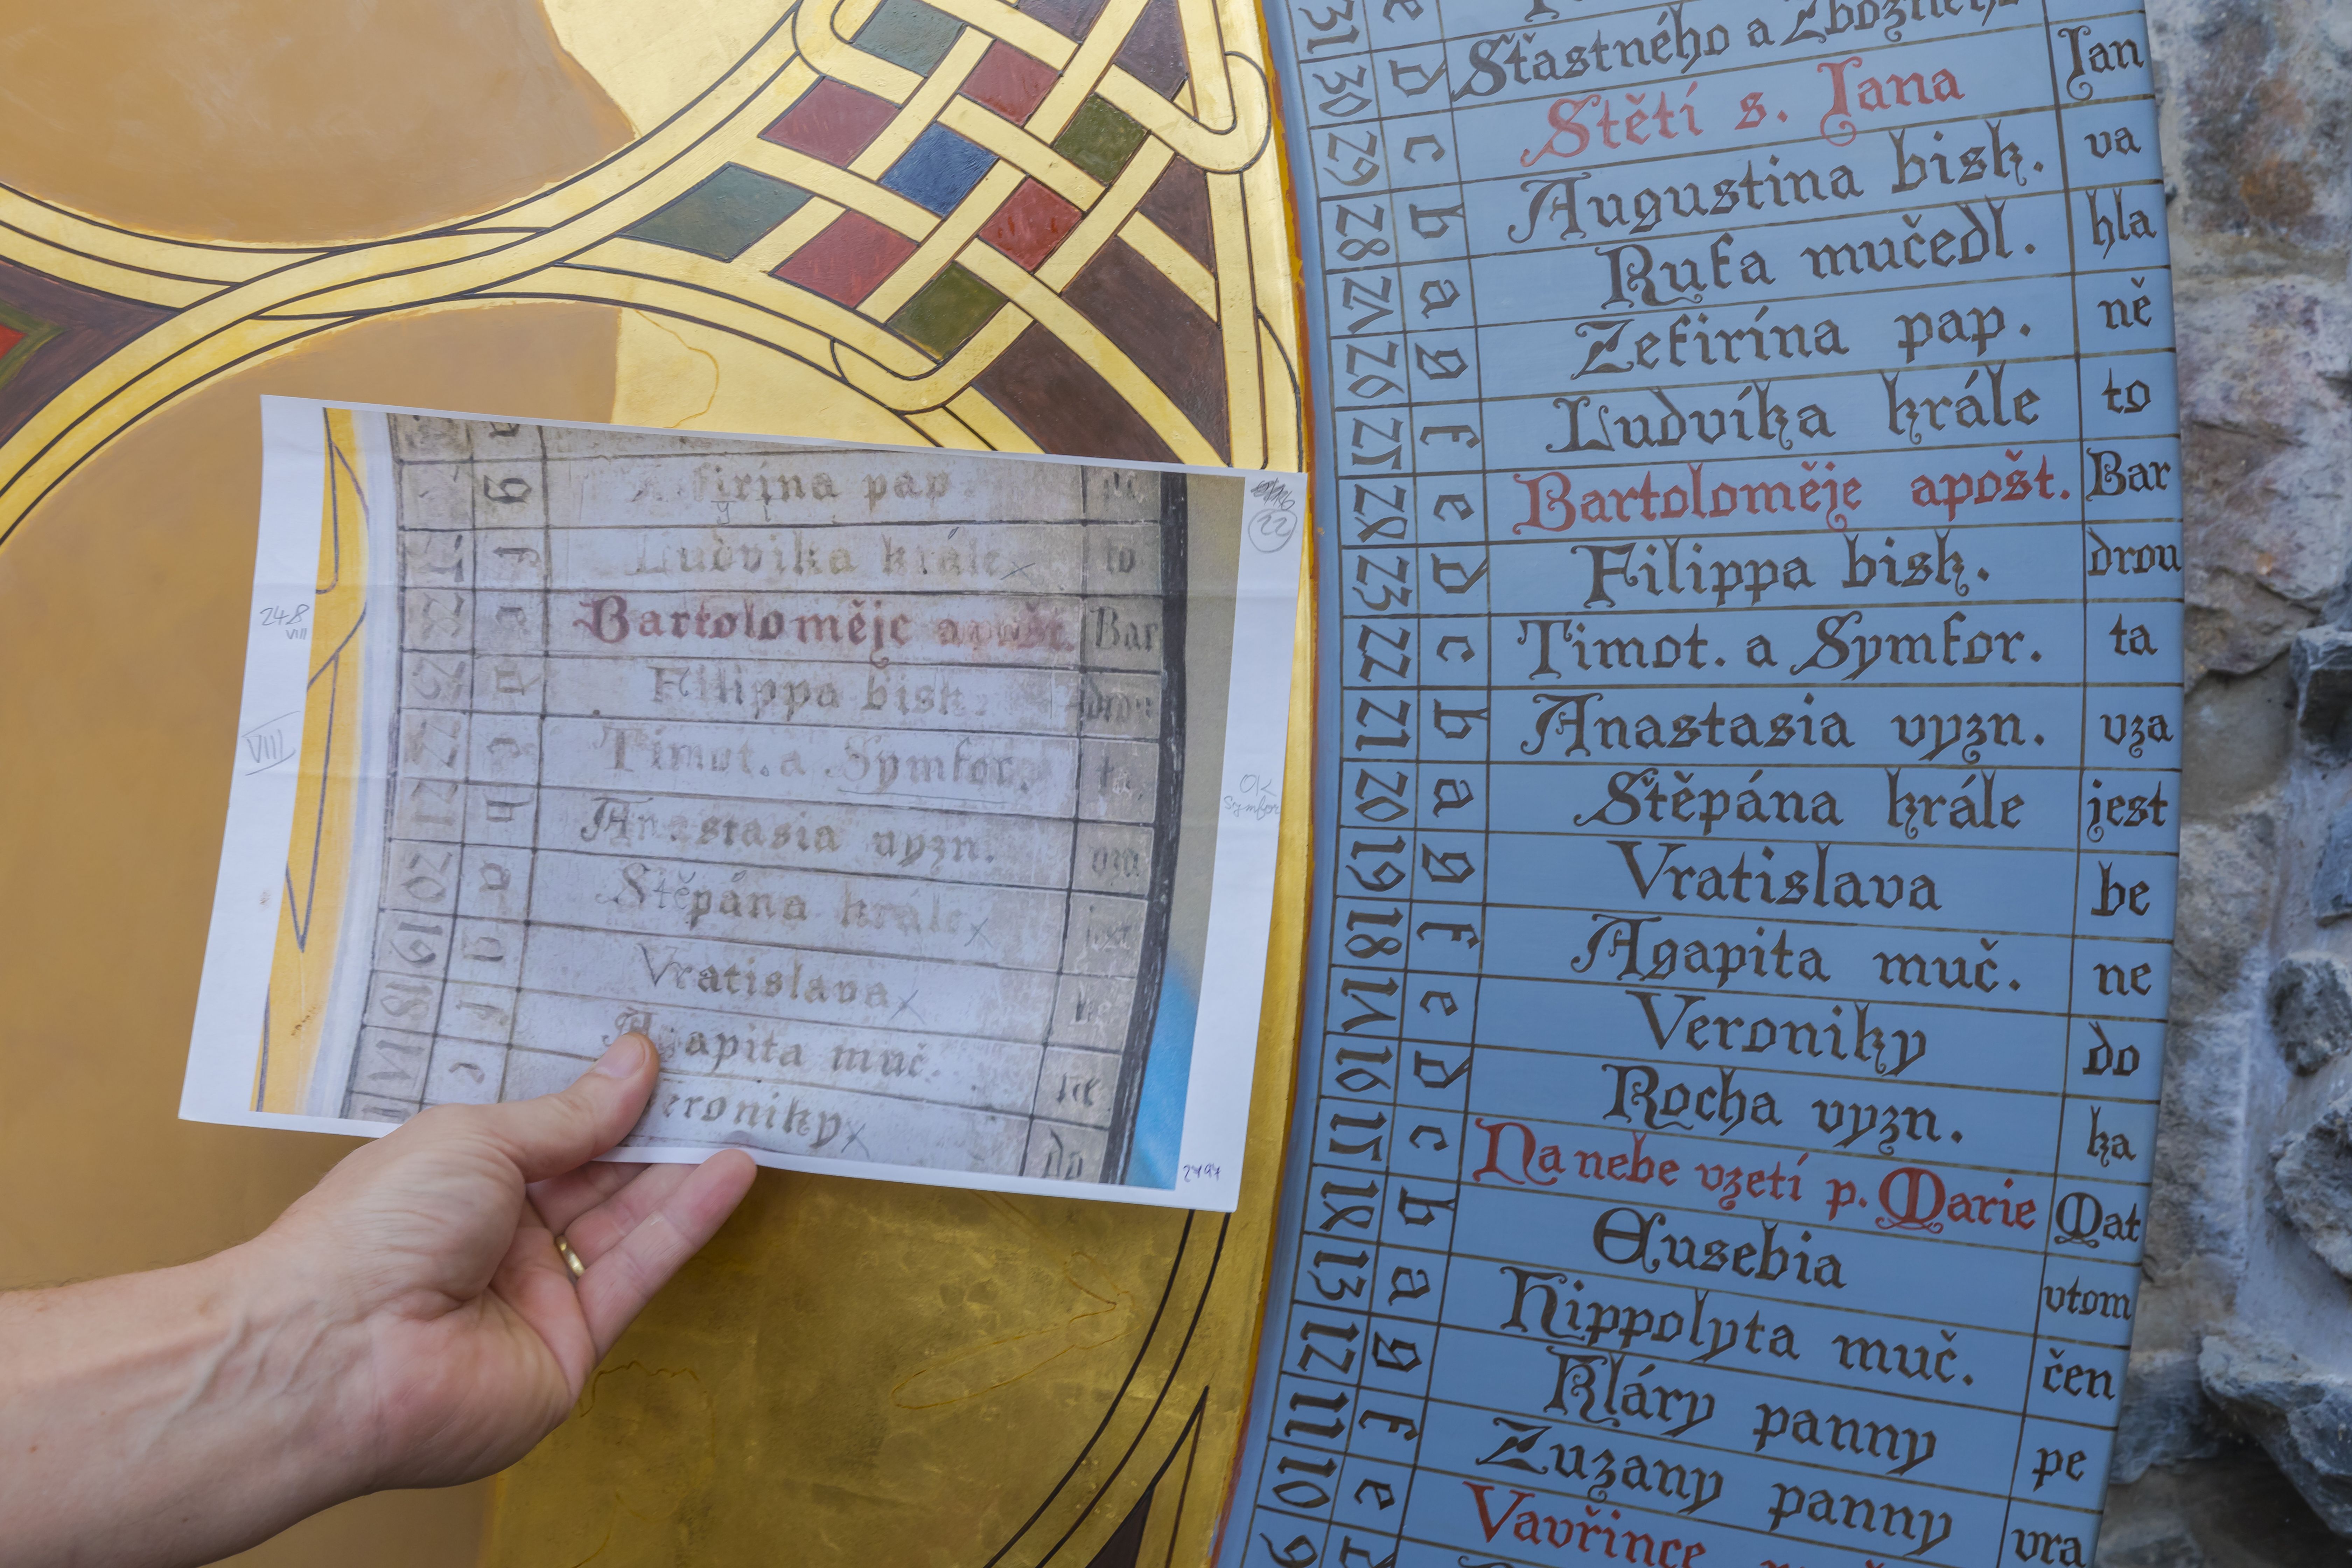 31 e
30 d Sťastného a Zbožného
29 c Stětí s. Jana Jan
28 b Augustina bisk. va
27 a Rufa mučedl. hla
26 g Zefirína pap. ně
25 f Ludvíka krále to
24 e Bartoloměje apošt. Bar
23 d Filippa bisk. drou
22 c Timot. a Symfor. ta
21 b Anastasia vyzn. vza
20 a Stěpána krále jest
19 g Vratislava be
18 f Agapita muč. ne
17 e Veroniky do
16 d Rocha vyzn. ka
15 c Na nebe vzetí p. Marie Mat
14 b Eusebia vtom
13 a Hippolyta muč. čen
12 g Kláry panny pe
11 f Zuzany panny vra
10 e Vavřince
9
g firína pap
22
Ludvika krále to
248
VIII
Bartoloměje apošt. Bar
Filippa bisk.
VIII
22 c Timot. a Symfor. ta
OK
Symfor
21 Anastasia vyzn.
20 a Stěpána krále jest
19 Vratislava
18 f Agapita muč. ne
17 e eroniky do